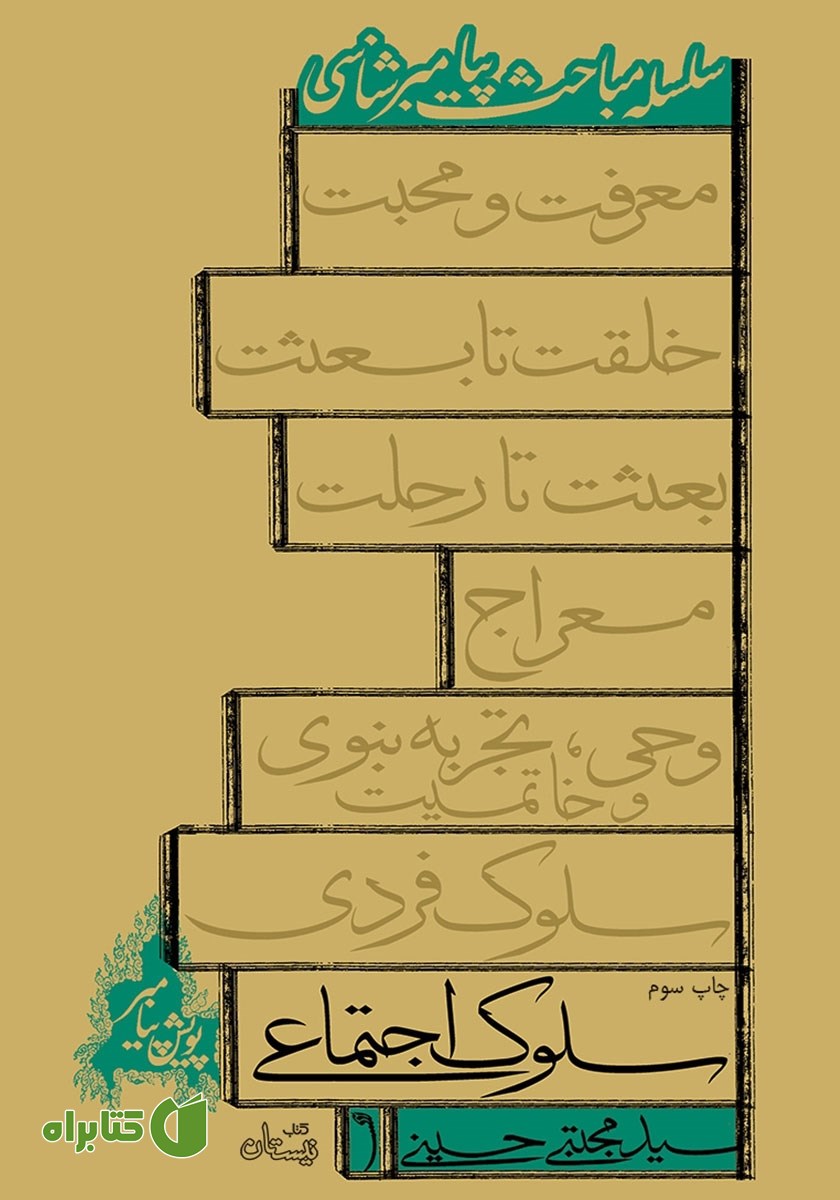 سلسله مباحث پیامبرشناسی
معرفت و محبت
خلقت تا بعثت
بعثت تا رحلت
معراج
وحی، تجربه نبوی
و خاتمیت
سلوک فردی
چاپ سوم
سلوک اجتماعی
پویش پیامبر
سید مجتبی حسینی
کتاب نیستان
کتابراه